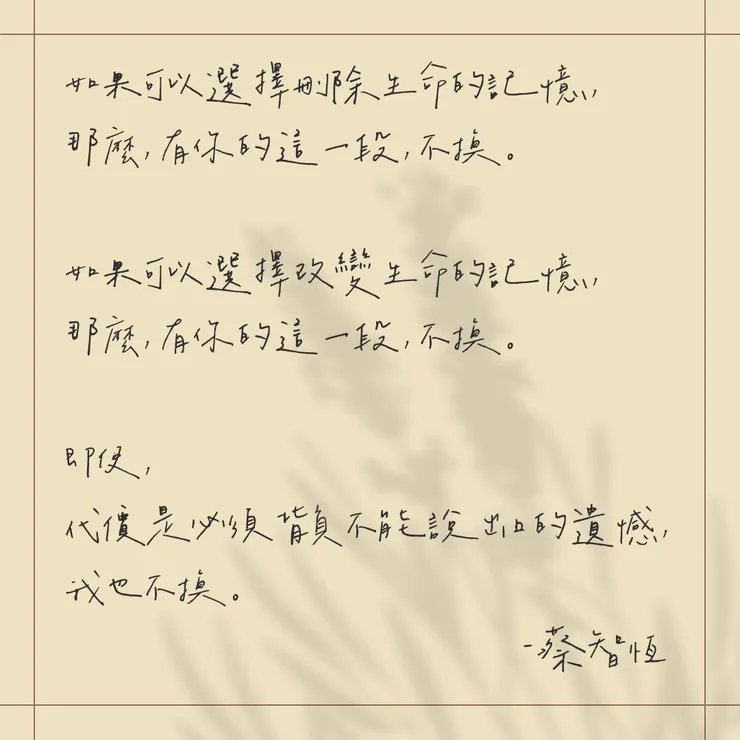 如果可以選擇刪除生命的記憶,
那麼,有你的這一段,不換。
如果可以選擇改變生命的記憶,
那麼,有你的這一段,不換。
即便,
代價是必須背負不能說出口的遺憾,
我也不換。
-蔡智恆